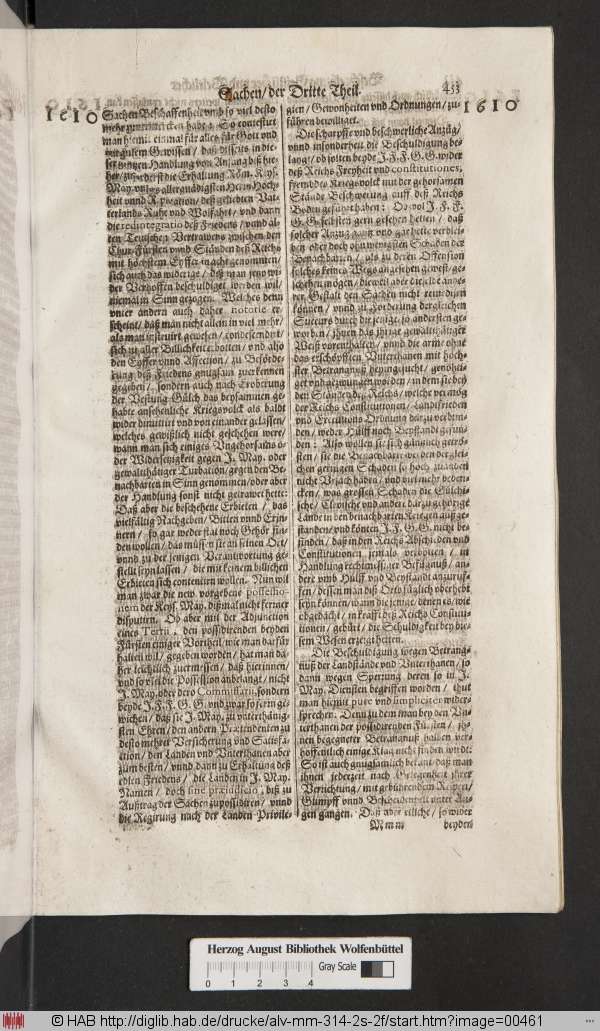 Sachen/ der Dritte Theil.
453
1610
1610
Sachen Beschaffenheit vmb so viel desto
mehr zuvermercken habe: So contestirt
man hiemit einmal für alles für Gott vnd
mit gutem Gewissen/ daß disseits in die-
ser gantzen Handlung von Anfang biß hie-
her/ zuforderst die Erhaltung Röm. Keys.
May. vnsers allergnädigsten Herrn Hoch-
heit vnnd Reputation/ deß geliebten Vat-
terlands Ruhe vnd Wolfahrt/ vnd dann
die redintegratio deß Friedens/ vnnd al-
ten Teutschen Vertrawens zwischen den
Chur-Fürsten vnnd Ständen deß Reichs
mit höchstem Eyffer in acht genommen/
sich auch das widerige/ deß man jenseit wi-
der Verhoffen beschuldiget werden wil/
niemal in Sinn gezogen. Welches denn
vnter andern auch daher notoriè er-
scheint/ daß man nicht allein in viel mehr/
als man instruirt gewesen/ condescendirt/
sich zu aller Billichkeit erbotten/ vnd also
den Eyffer vnnd Affection/ zu Beförde-
rung deß Friedens gnugsam zuerkennen
gegeben/ sondern auch nach Eroberung
der Vestung Gülch das beysammen ge-
habte ansehenliche Kriegsvolck als bald
wider dimittirt vnd von einander gelassen/
welches gewißlich nicht geschehen were/
wann man sich einiges Vngehorsams o-
der Widersetzigkeit gegen J. May. oder
gewaltthätiger Turbation/ gegen den Be-
nachbarten in Sinn genommen/ oder aber
der Handlung sonst nicht getrawet hette:
Daß aber die beschehene Erbieten/ das
vielfältig Nachgeben/ Bitten vnnd Erin-
nern/ so gar weder stat noch Gehör fin-
den wollen/ das müssen sie an seinen Ort/
vnnd zu der jenigen Verantwortung ge-
stellt seyn lassen/ die mit keinem billichen
Erbieten sich contentirn wollen. Nun wil
man zwar die new vorgebene possessio-
nem der Keys. May. dißmal nicht ferrner
disputirn. Ob aber mit der Adjunction
eines Tertii, den possidirenden beyden
Fürsten einiger Vortheil/ wie man darfür
halten wil/ gegeben worden/ hat man da-
her leichtlich zuermessen/ daß hierinnen/
vnd so viel die Possession anbelangt/ nicht
J. May. oder dero Commissarii, sondern
beyde J. F. F. G. G. vnd zwar so fern ge-
wichen/ daß sie J. May. zu vnterthänig-
sten Ehren/ den andern Praetendenten zu
desto mehrer Versicherung vnd Satisfa-
ction/ den Landen vnd Vnterthanen aber
zum besten/ vnnd dann zu Erhaltung deß
edlen Friedens/ die Landen in J. May.
Namen/ doch sine praejudicio, biß zu
Außtrag der Sachen zu possidiren/ vnnd
die Regirung nach der Landen Privile-
gien/ Gewonheiten vnd Ordnungen/ zu-
führen bewilliget.
Die scharpffe vnd beschwerliche Anzüg/
vnnd insonderheit die Beschuldigung be-
langt/ ob solten beyde J. F. F. G. G. wider
deß Reichs Freyheit vnd constitutiones,
frembdes Kriegsvolck mit der gehorsamen
Stände Beschwerung auff deß Reichs
Boden geführt haben: Ob wol J. F. F.
G. G. selbsten gern gesehen hetten/ daß
solcher Anzug gantz vnd gar hette verblei-
ben oder doch ohn wenigsten Schaden der
Benachbarten/ als zu deren Offension
solches keines Wegs angesehen gewest/ ge-
schehen mögen/ dieweil aber dieselbe ande-
rer Gestalt den Sachen nicht remediren
können/ vnnd zu Forderung dergleichen
Succurs durch die jenige/ so andersten ge-
worben/ jhnen das jhrige gewaltthätiger
Weiß vorenthalten/ vnnd die arm/ ohne
das erschöpfften Vnterthanen mit höch-
ster Betrangnuß heymgesucht/ genötiget
vnd gezwungen worden/ in dem sie bey
den Ständen deß Reichs/ welche vermög
der Reichs Constitutionen/ Landtfrieden
vnd Executions Ordnung dazu verbun-
den/ weder Hülff noch Beystandt gefun-
den: Also wollen sie sich gäntzlich getrö-
sten/ sie die Benachbarte werden dergleichen
geringen Schaden so hoch zuanden
nicht Vrsach haben/ vnd viel mehr beden-
cken/ was grossen Schaden die Gülchi-
sche/ Clevische vnd andere darzu gehörige
Lande in den benachbarten Kriegen außge-
standen/ vnd könten J. F. F. G. G. nicht be-
finden/ daß in den Reichs Abschieden vnd
Constitutionen jemals verbotten/ in
Handlung rechtmessiger Befügnuß/ an-
dere vmb Hülff vnd Beystandt anzuruf-
fen/ dessen man diß Orts füglich oberhebt
seyn können/ wann die jenige/ denen es/ wie
obgedacht/ in krafft deß Reichs Constitu-
tionen/ gebürt/ die Schuldigkeit bey die-
sem Wesen erzeigt hetten.
Die Beschuldigung wegen Betrang-
nuß der Landstände vnd Vnterthanen/ so
dann wegen Sperrung deren so in J.
May. Diensten begriffen worden/ thut
man hiemit pure vnd simpliciter wider-
sprechen. Denn zu dem man bey den Vn-
terthanen der possidirenden Fürsten/ jh-
nen begegneter Betrangnuß halben ver-
hoffentlich einige Klag nicht finden wirdt:
So ist auch gnugsamlich bekant/ daß man
jhnen jederzeit nach Gelegenheit jhrer
Verrichtung/ mit gebührendem Respect/
Glimpff vnnd Bescheidenheit vnter Au-
gen gangen. Daß aber etliche/ so wider
Mmm
beyden
Herzog August Bibliothek Wolfenbüttel
0 1 2 3 4
Gray Scale
© HAB http://diglib.hab.de/drucke/alv-mm-314-2s-2f/start.htm?image=00461